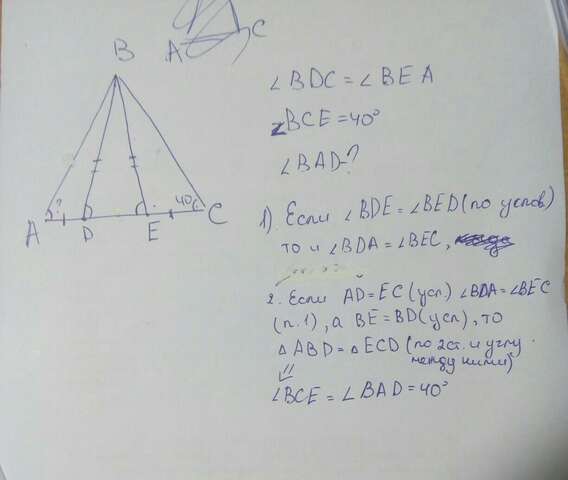 A C
B
A ? D E 40° C
∠BDC = ∠BEA
∠BCE = 40°
∠BAD-?
1). Если ∠BDE = ∠BED (по услов)
то и ∠BDA = ∠BEC,
2. Если AD = EC (усл) ∠BDA = ∠BEC
(п.1), а BE = BD (усл), то
△ABD = △ECD (по 2ст. и углу
между ними)
⇓
∠BCE = ∠BAD = 40°